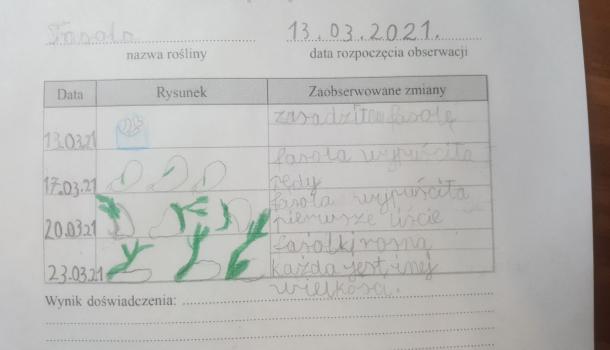 Fasola 13.03.2021.
nazwa rośliny data rozpoczęcia obserwacji
Data Rysunek Zaobserwowane zmiany
13.03.21 zasadziłam fasolę
fasola wypuściła
17.03.21 pędy
fasola wypuściła
20.03.21 pierwsze liście
fasolki rosną
23.03.21 każda jest innej
wielkości.
Wynik doświadczenia: